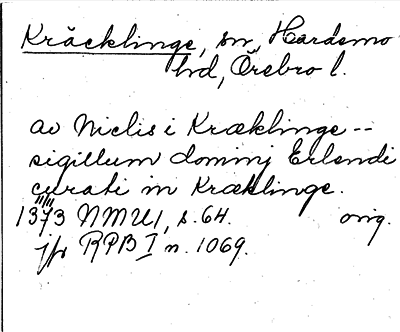 Kräcklinge, sn, Hardemo
hd, Örebro l.
av Niclis i Kræklinge --
sigillum dominj Erlendi
curati in Kræklinge.
1373 NMU1, s. 64. orig.
jfr RPB I n. 1069.